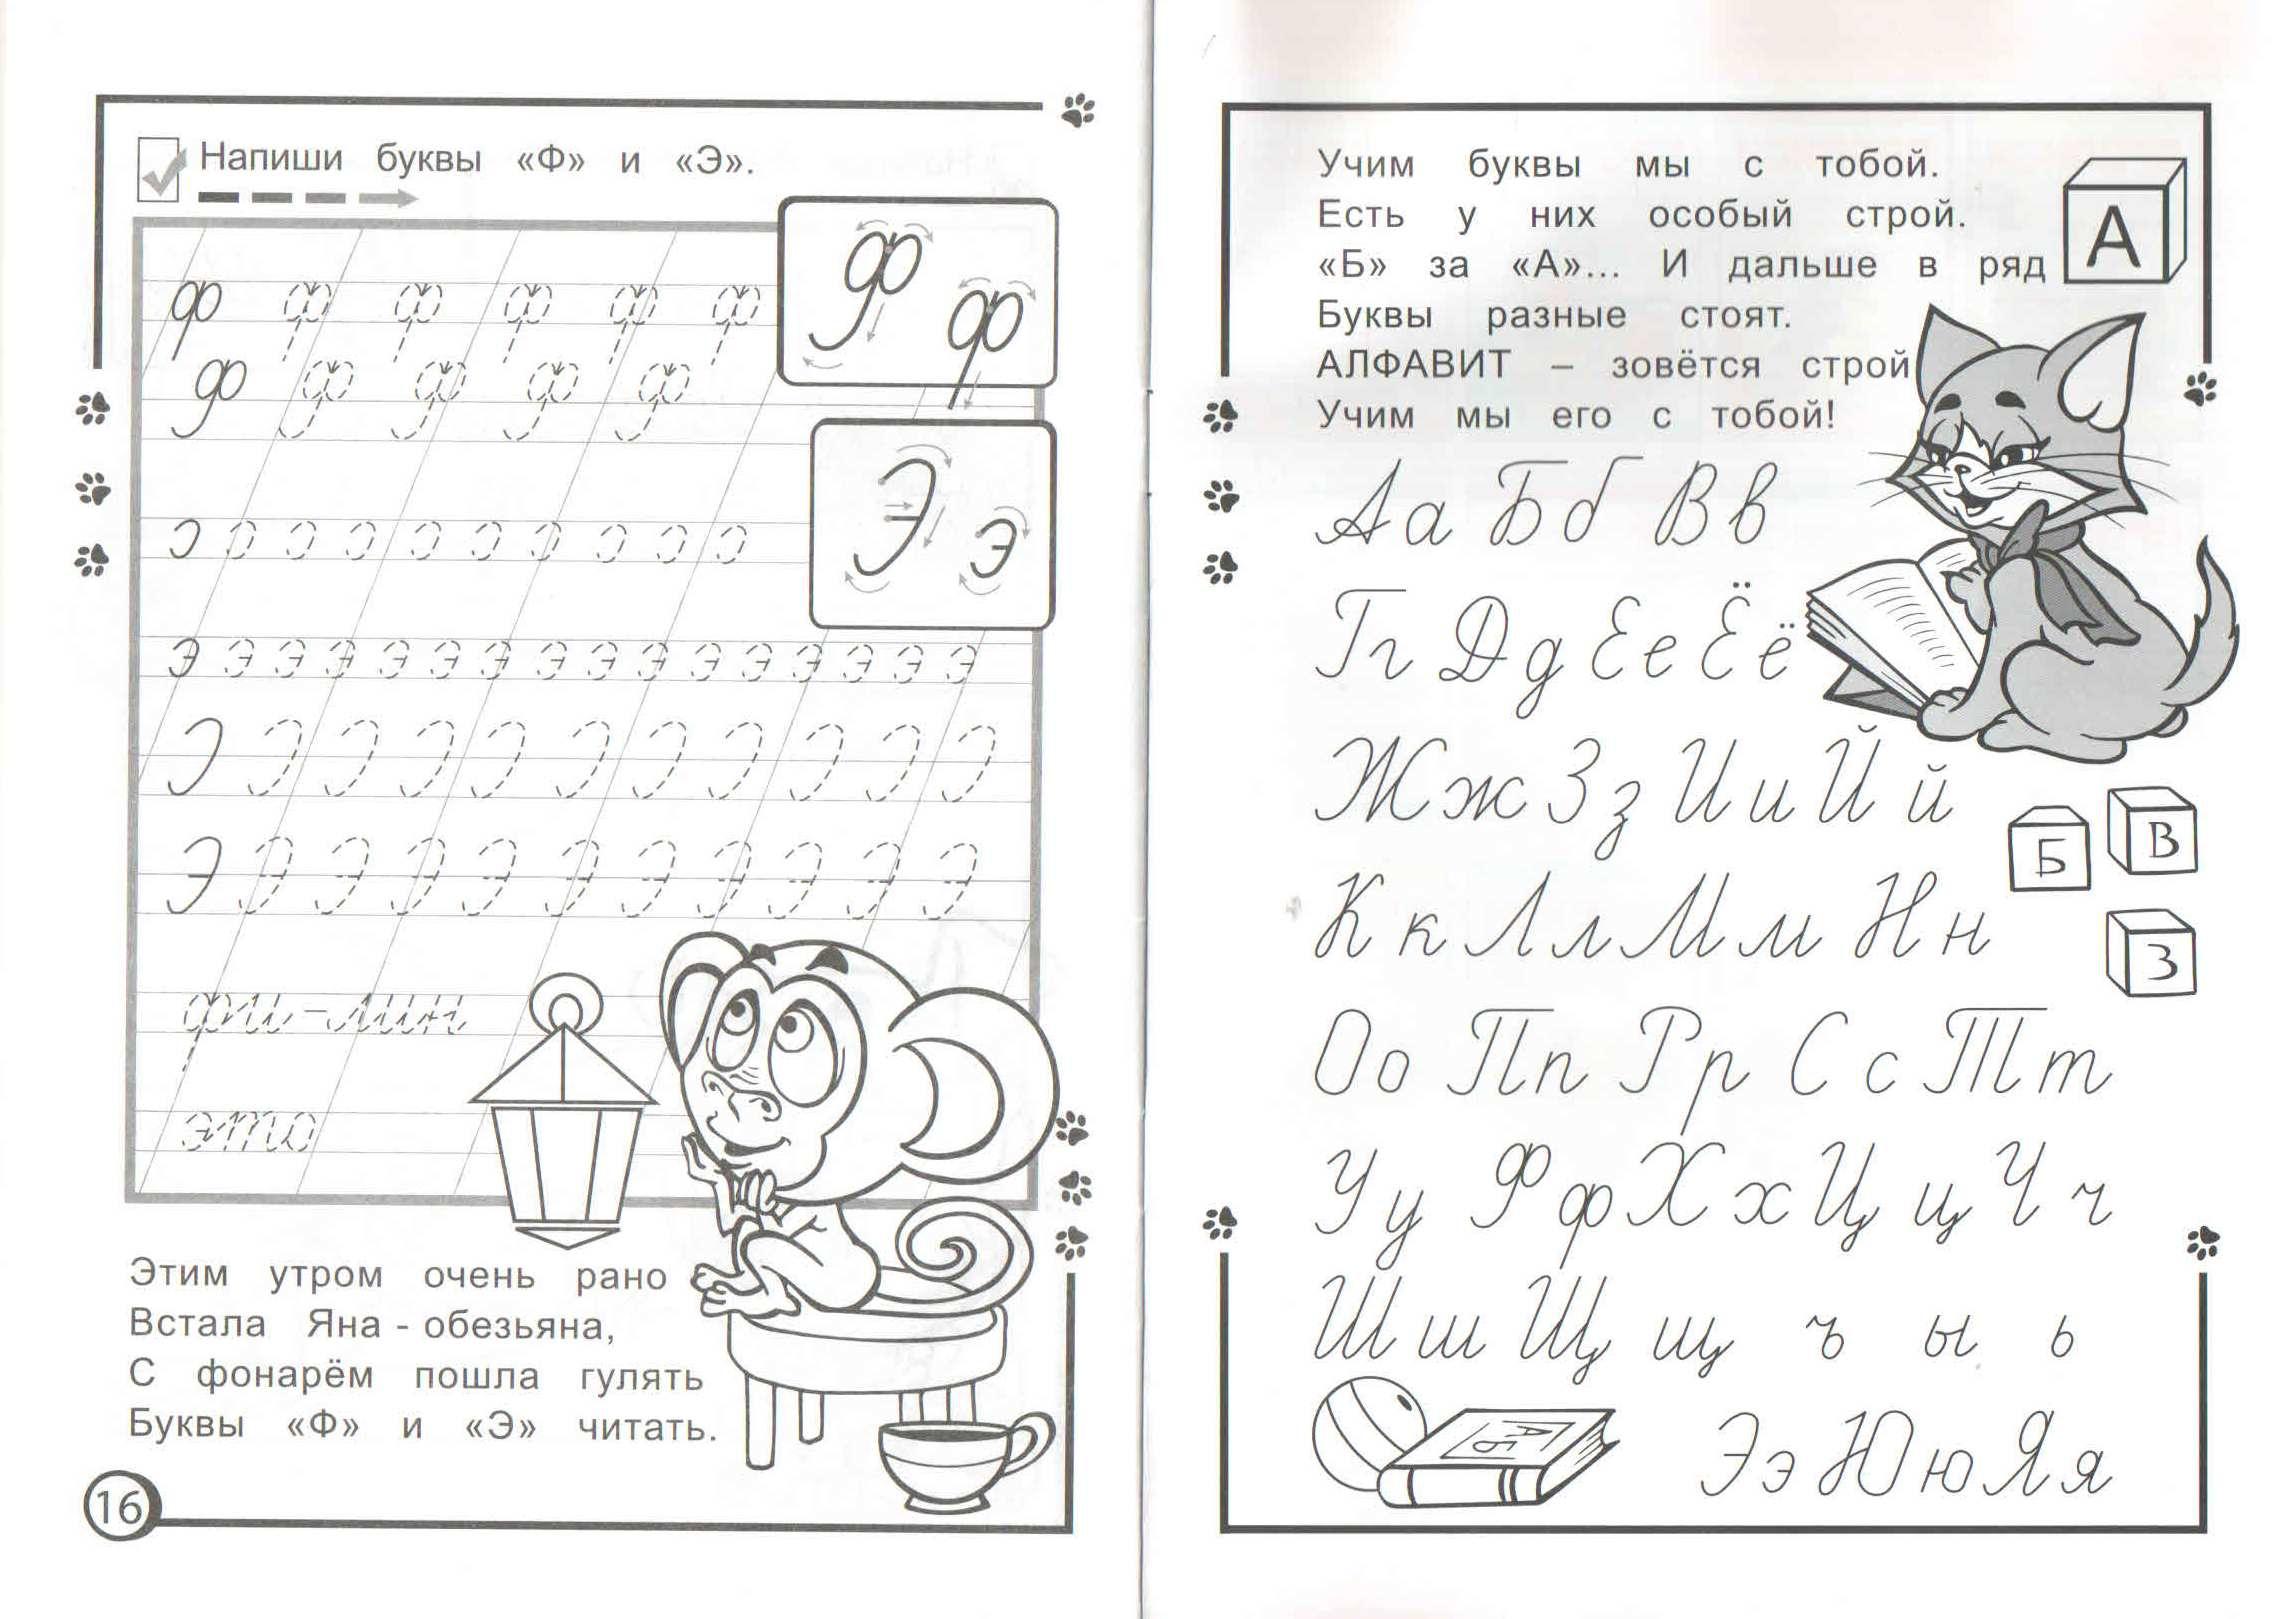 Напиши буквы «Ф» и «Э».
ф ф ф ф ф ф
Ф ф
Ф Ф Ф Ф Ф
Э э
э э э э э э э э э э э э э э э э
Э Э Э Э Э Э Э Э Э Э Э
фи-лин
это
Этим утром очень рано
Встала Яна - обезьяна,
С фонарём пошла гулять
Буквы «Ф» и «Э» читать.
16
Учим буквы мы с тобой.
Есть у них особый строй.
«Б» за «А»... И дальше в ряд
Буквы разные стоят.
АЛФАВИТ – зовётся строй
Учим мы его с тобой!
А
Аа Бб Вв
Гг Дд Ее Ёё
Жж Зз Ии Йй
Б В
Кк Лл Мм Нн
З
Оо Пп Рр Сс Тт
Уу Фф Хх Цц Чч
Шш Щщ ъ ы ь
АБ
Ээ Юю Яя